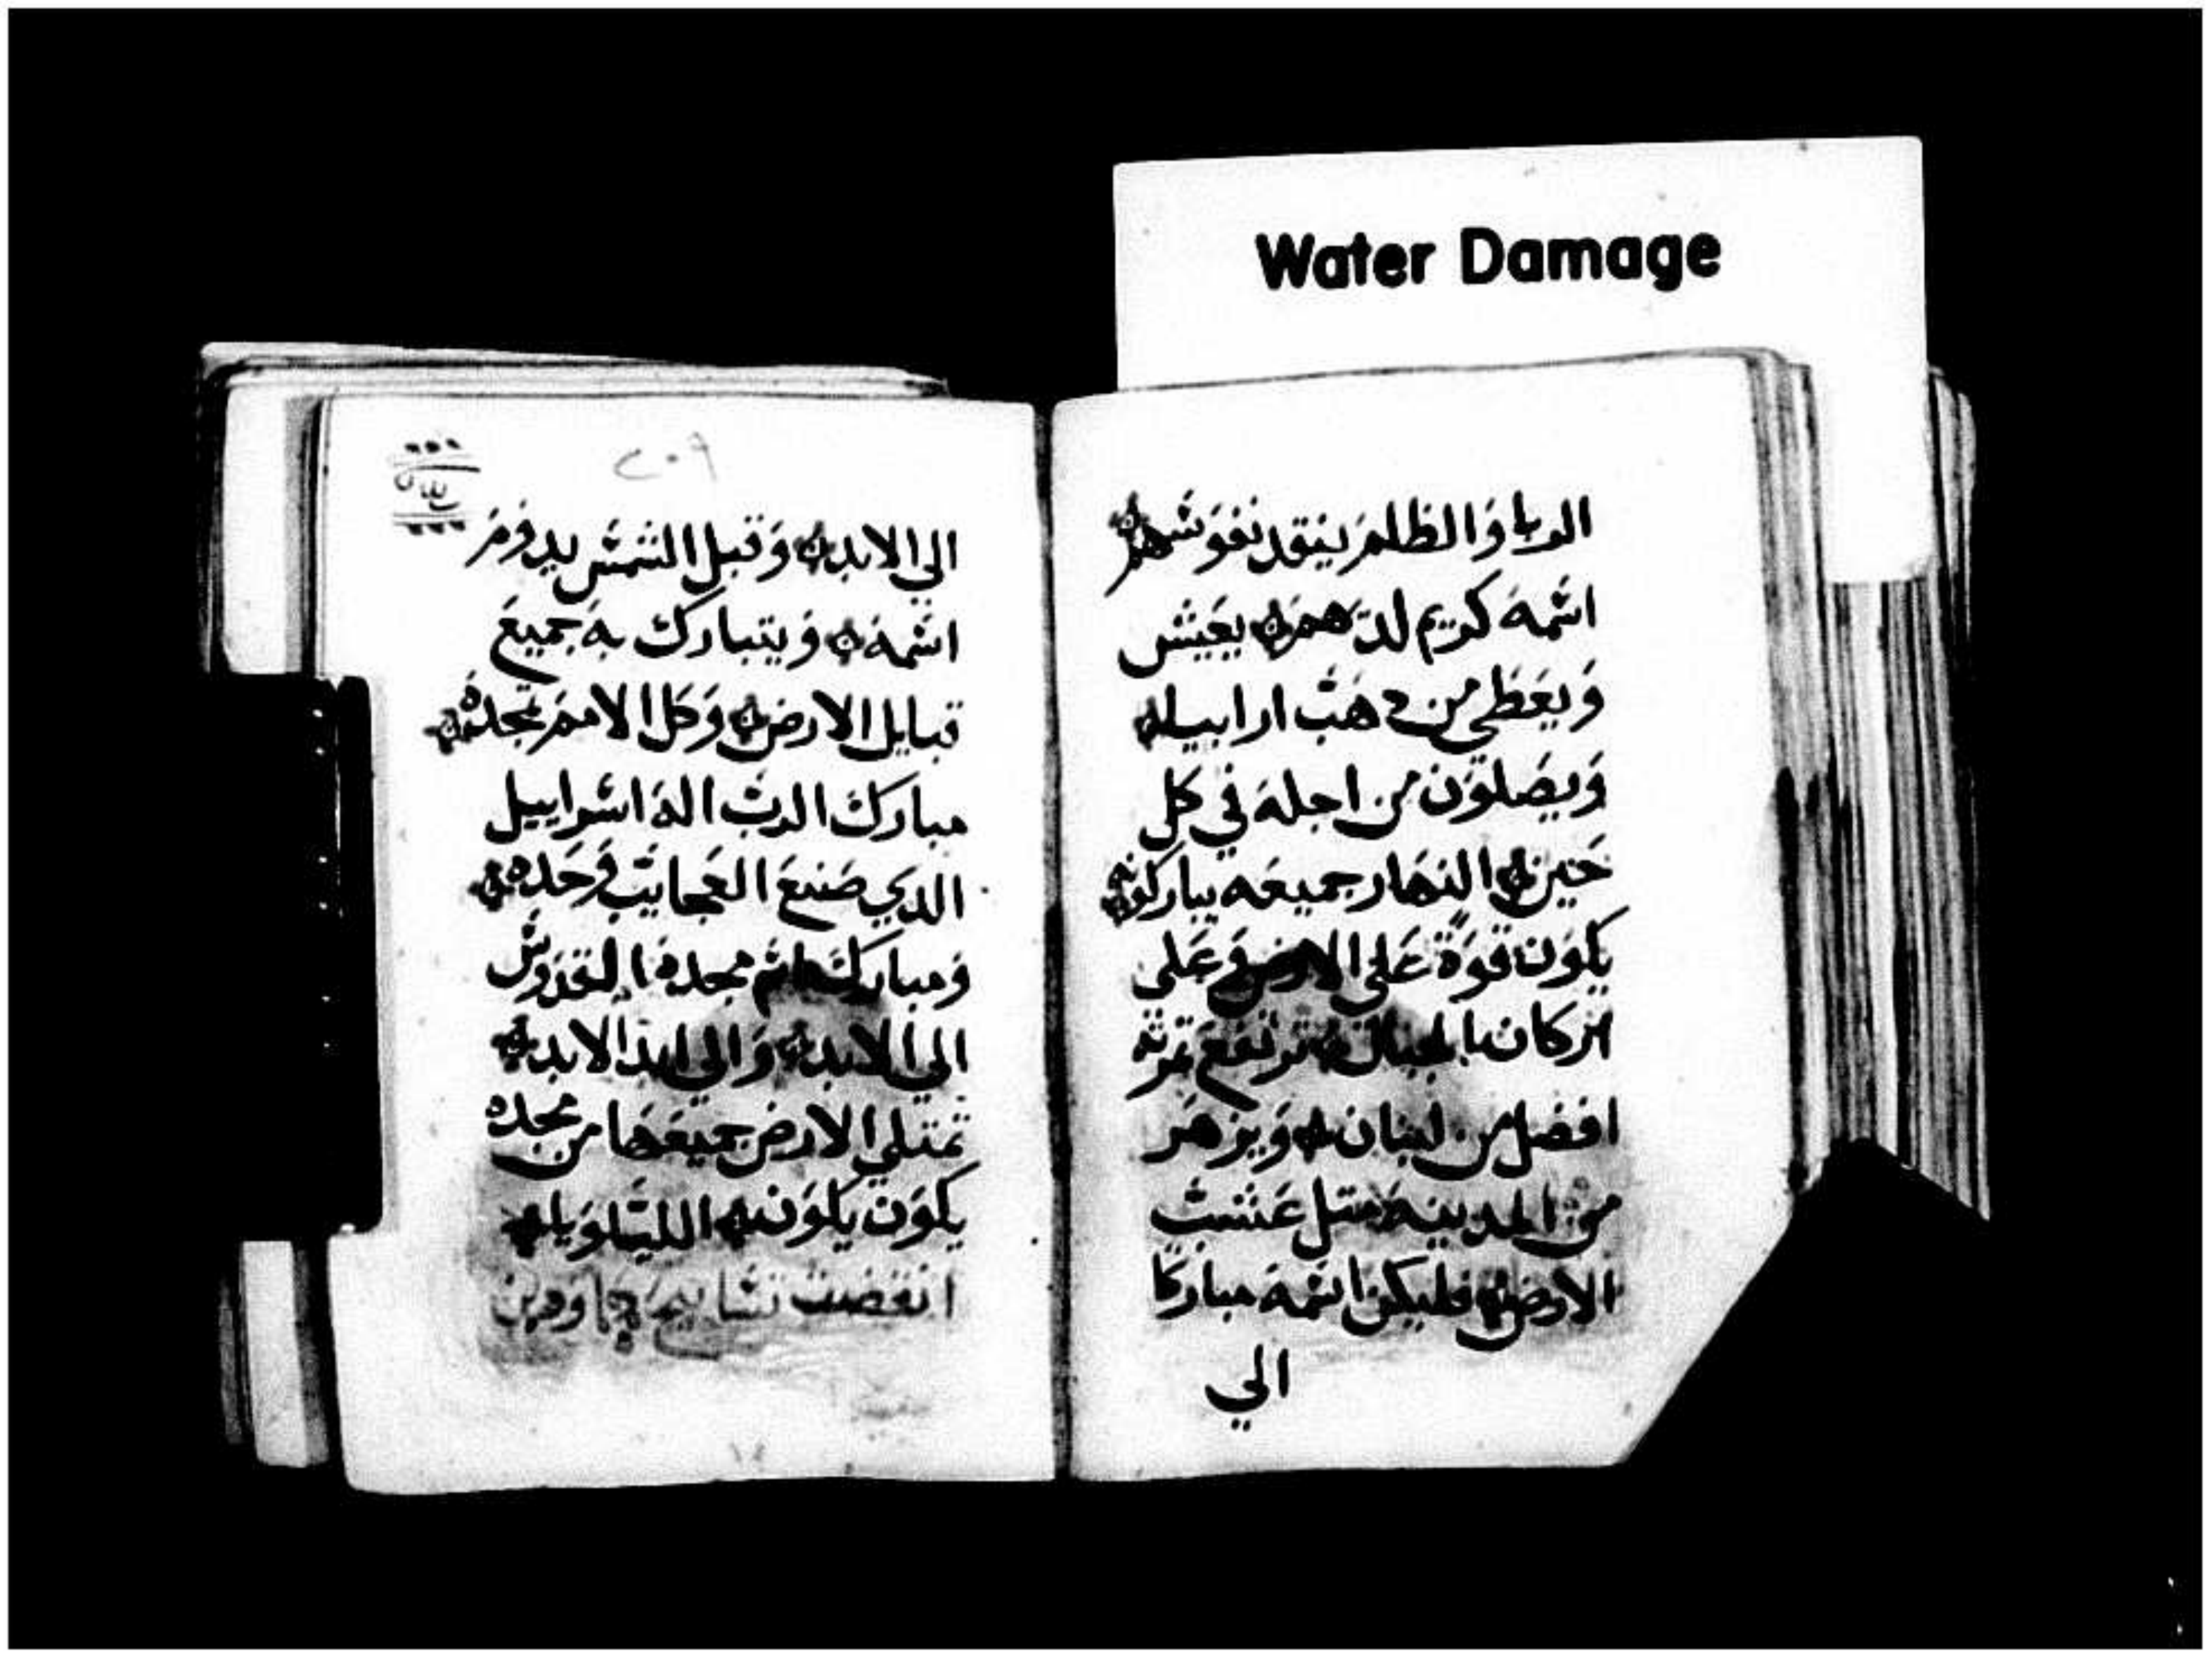 Water Damage
الربا والظلم ينقد نفوسهم
اسمه كريم لديهم يعيش
ويعطي من دهب ارابيا
ويصلون من اجله في كل
حين النهار جميعه يباركونه
يكون قوة على الارض وعلى
اركان الجبال ترتفع ثمرته
افضل من لبنان ويزهر
من المدينه متل عشب
الارض فليكن اسمه مباركا
الي
٢٠٩
الي الابد وقبل الشمس يدوم
اسمه ويتبارك به جميع
قبايل الارض وكل الامم تمجده
مبارك الرب اله اسراييل
الدي صنع العجايب وحده
ومبارك اسم مجده القدوس
الي الابد والي ابد الابد
تمتلي الارض جميعها من مجده
يكون يكون الليلويا
انقضت تسابيح داود بن